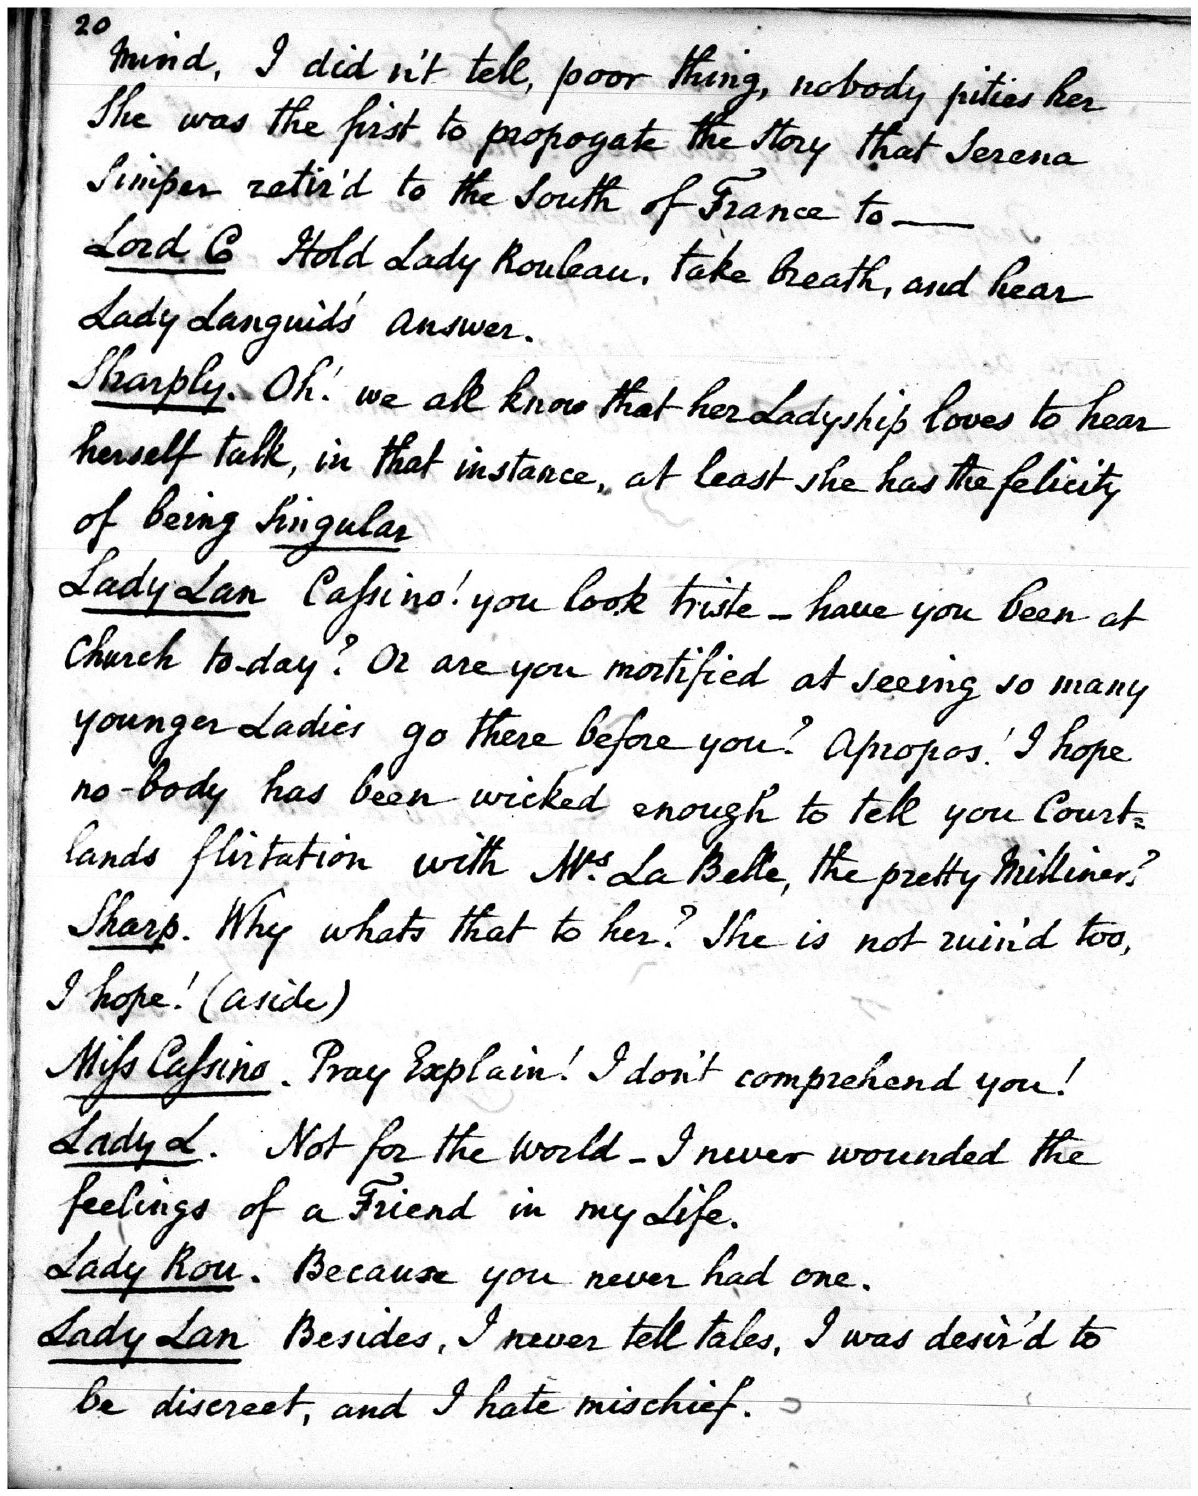 20
Mind, I did n't tell, poor thing, nobody pities her
She was the first to propogate the Story that Serena
Simper retir'd to the South of France to —
Lord C Hold Lady Rouleau, take breath, and hear
Lady Languid's answer.
Sharply. Oh! we all know that her Ladyship loves to hear
herself talk, in that instance, at least she has the felicity
of being Singular
Lady Lan Caſsino! you look triste – have you been at
Church to-day? Or are you mortified at seeing so many
younger Ladies go there before you? Apropos! I hope
no-body has been wicked enough to tell you Court=
lands flirtation with Mrs. La Belle, the pretty Milliner?
Sharp. Why whats that to her? She is not ruin'd too,
I hope! (aside)
Miſs Caſsino. Pray Explain! I don't comprehend you!
Lady L. Not for the World – I never wounded the
feelings of a Friend in my Life.
Lady Rou. Because you never had one.
Lady Lan Besides, I never tell tales, I was desir'd to
be discreet, and I hate mischief.